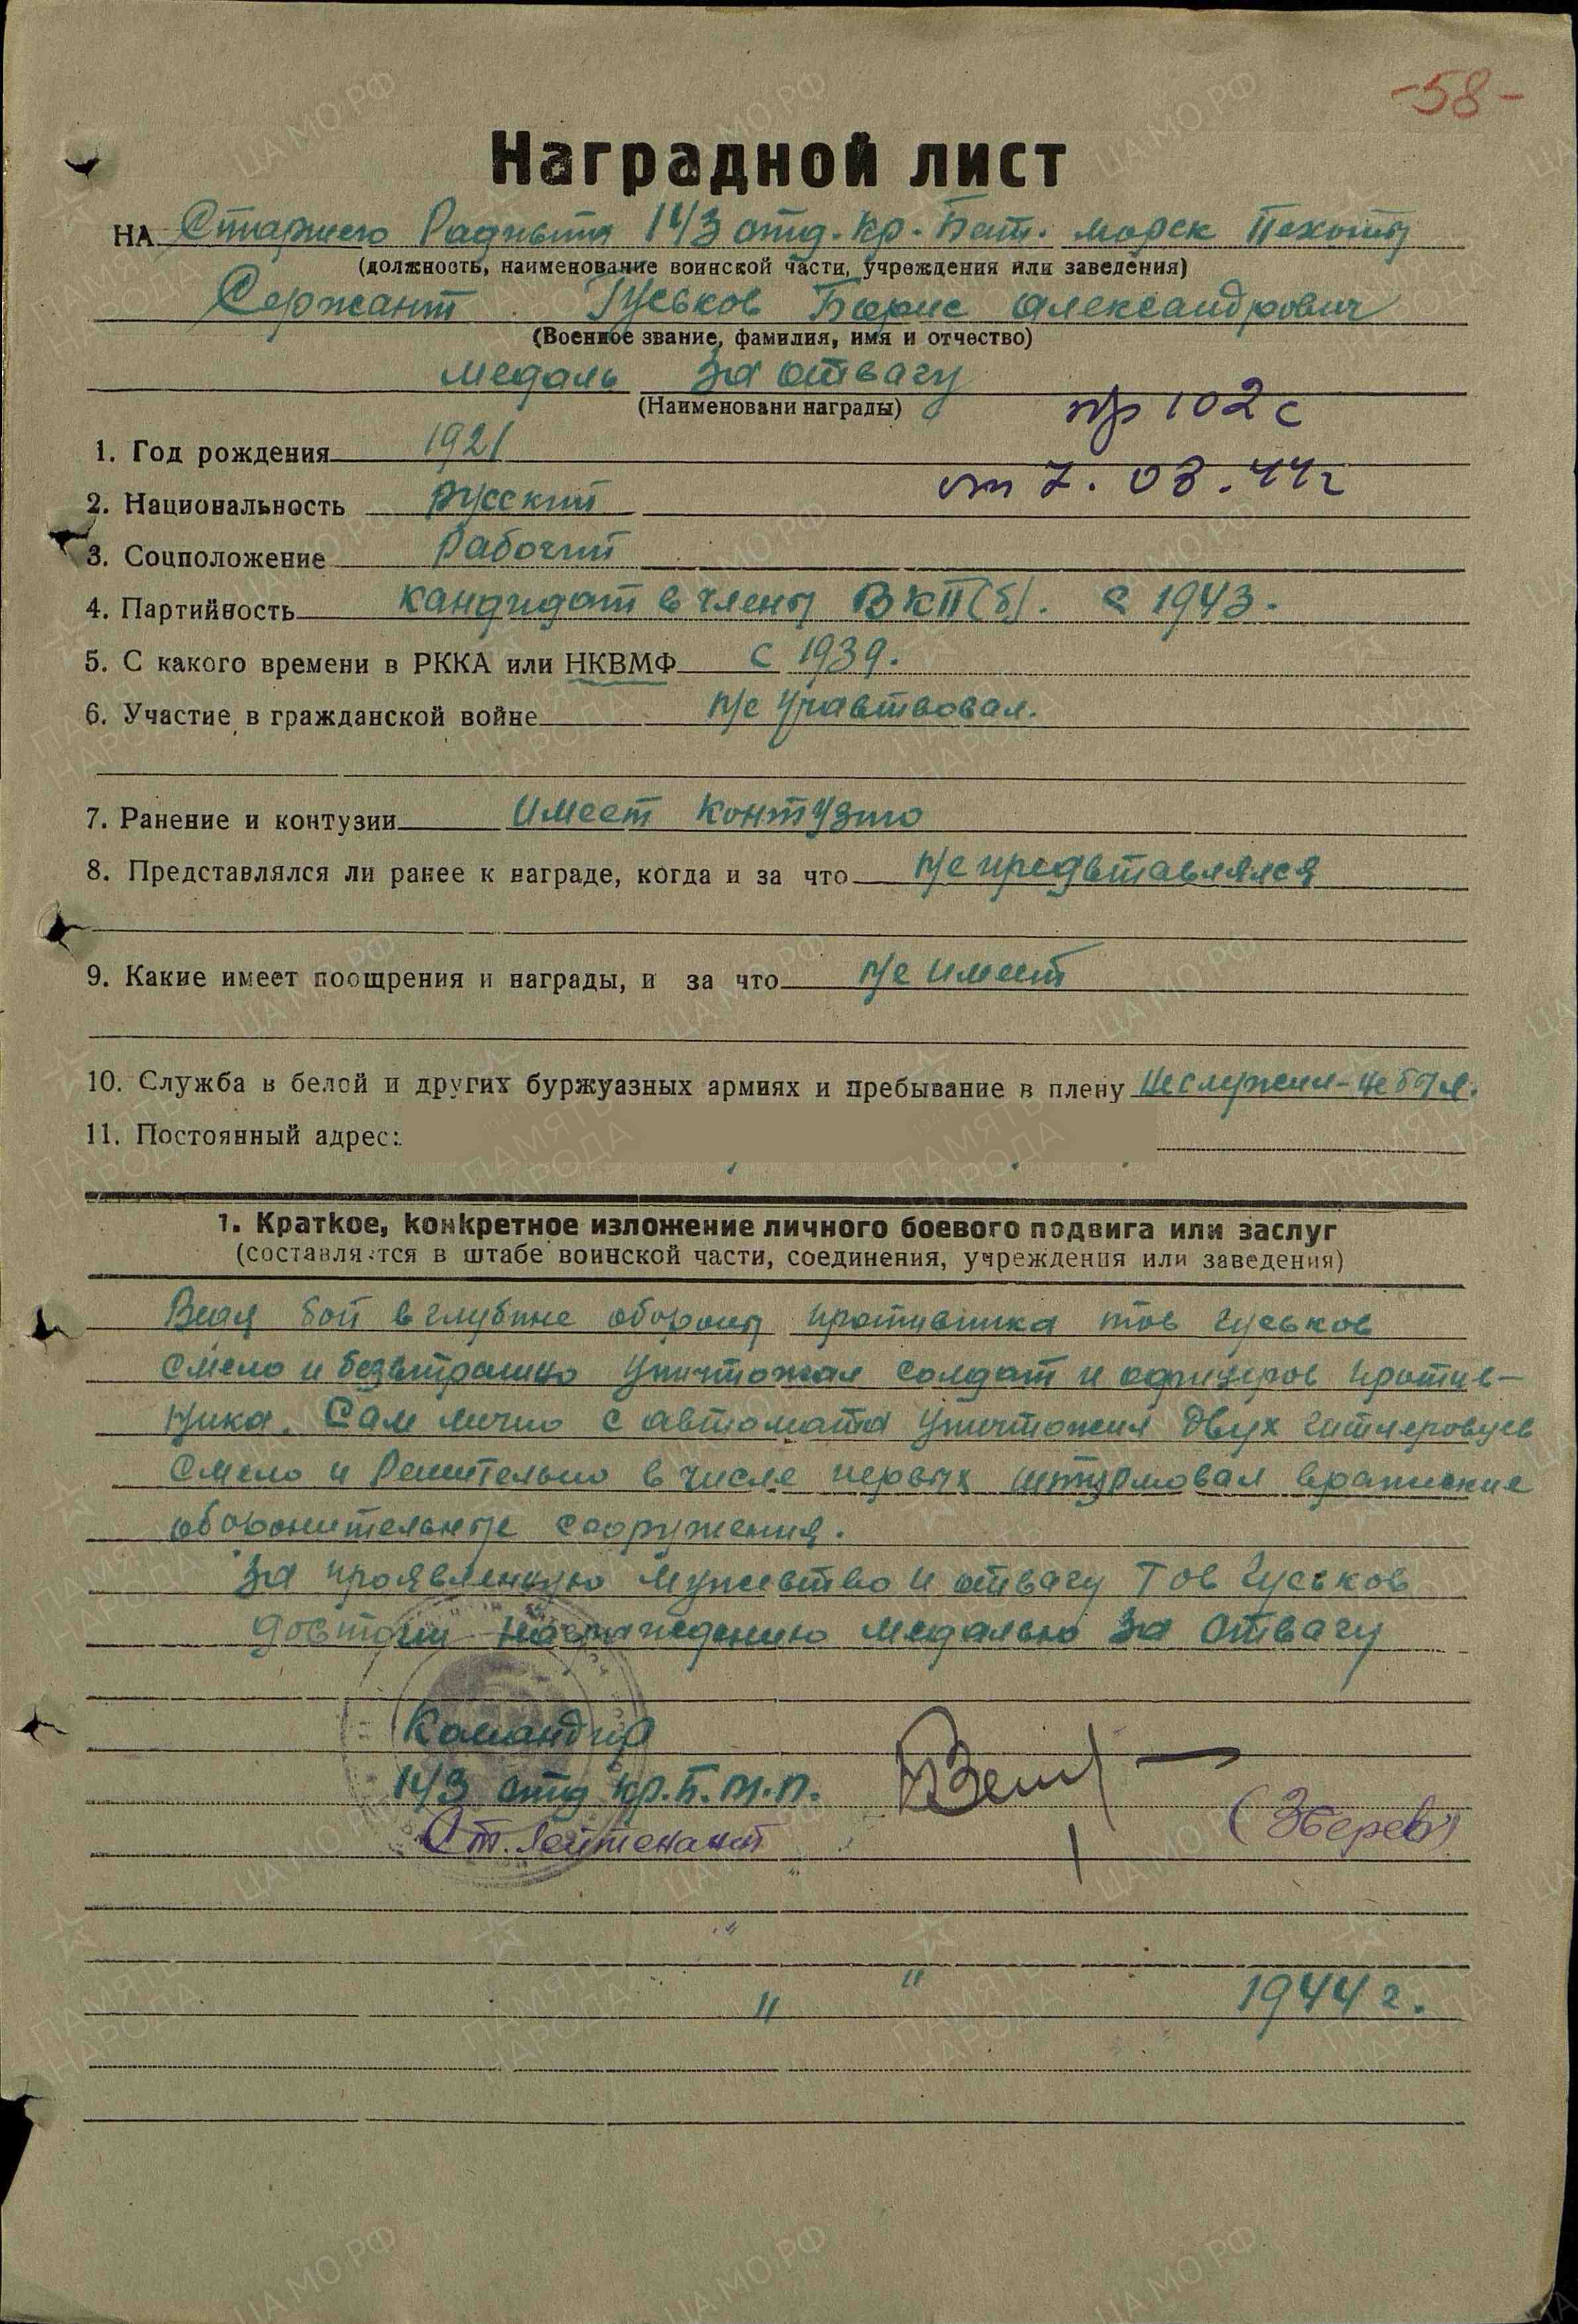 -58-
Наградной лист
НА Старшего Радиста 143 отд. кр. Бат. морск Пехоты
(должность, наименование воинской части, учреждения или заведения)
Сержант Гуськов Борис Александрович
(Военное звание, фамилия, имя и отчество)
медаль За отвагу
(Наименовани награды)
пр 102 с
1. Год рождения 1921
от 7.03.44г
2. Национальность русский
3. Соцположение Рабочий
4. Партийность кандидат в члены ВКП(б). с 1943.
5. С какого времени в РККА или НКВМФ с 1939.
6. Участие в гражданской войне Не участвовал.
7. Ранение и контузии Имеет контузию
8. Представлялся ли ранее к награде, когда и за что Не представлялся
9. Какие имеет поощрения и награды, и за что Не имеет
10. Служба в белой и других буржуазных армиях и пребывание в плену Не служил - не был.
11. Постоянный адрес:
1. Краткое, конкретное изложение личного боевого подвига или заслуг
(составляется в штабе воинской части, соединения, учреждения или заведения)
Ведя бой в глубине обороны противника тов Гуськов
смело и безстрашно уничтожал солдат и офицеров против-
ника. Сам лично с автомата уничтожил двух гитлеровцев
Смело и Решительно в числе первых штурмовал вражеские
оборонительные сооружения.
За проявленную мужество и отвагу Тов Гуськов
достоин награждению медалью За Отвагу
Командир
143 отд кр. Б. м. п.
Ст. Лейтенант (Зверев)
" " 1944 г.
ЦА МО РФ
ПАМЯТЬ НАРОДА